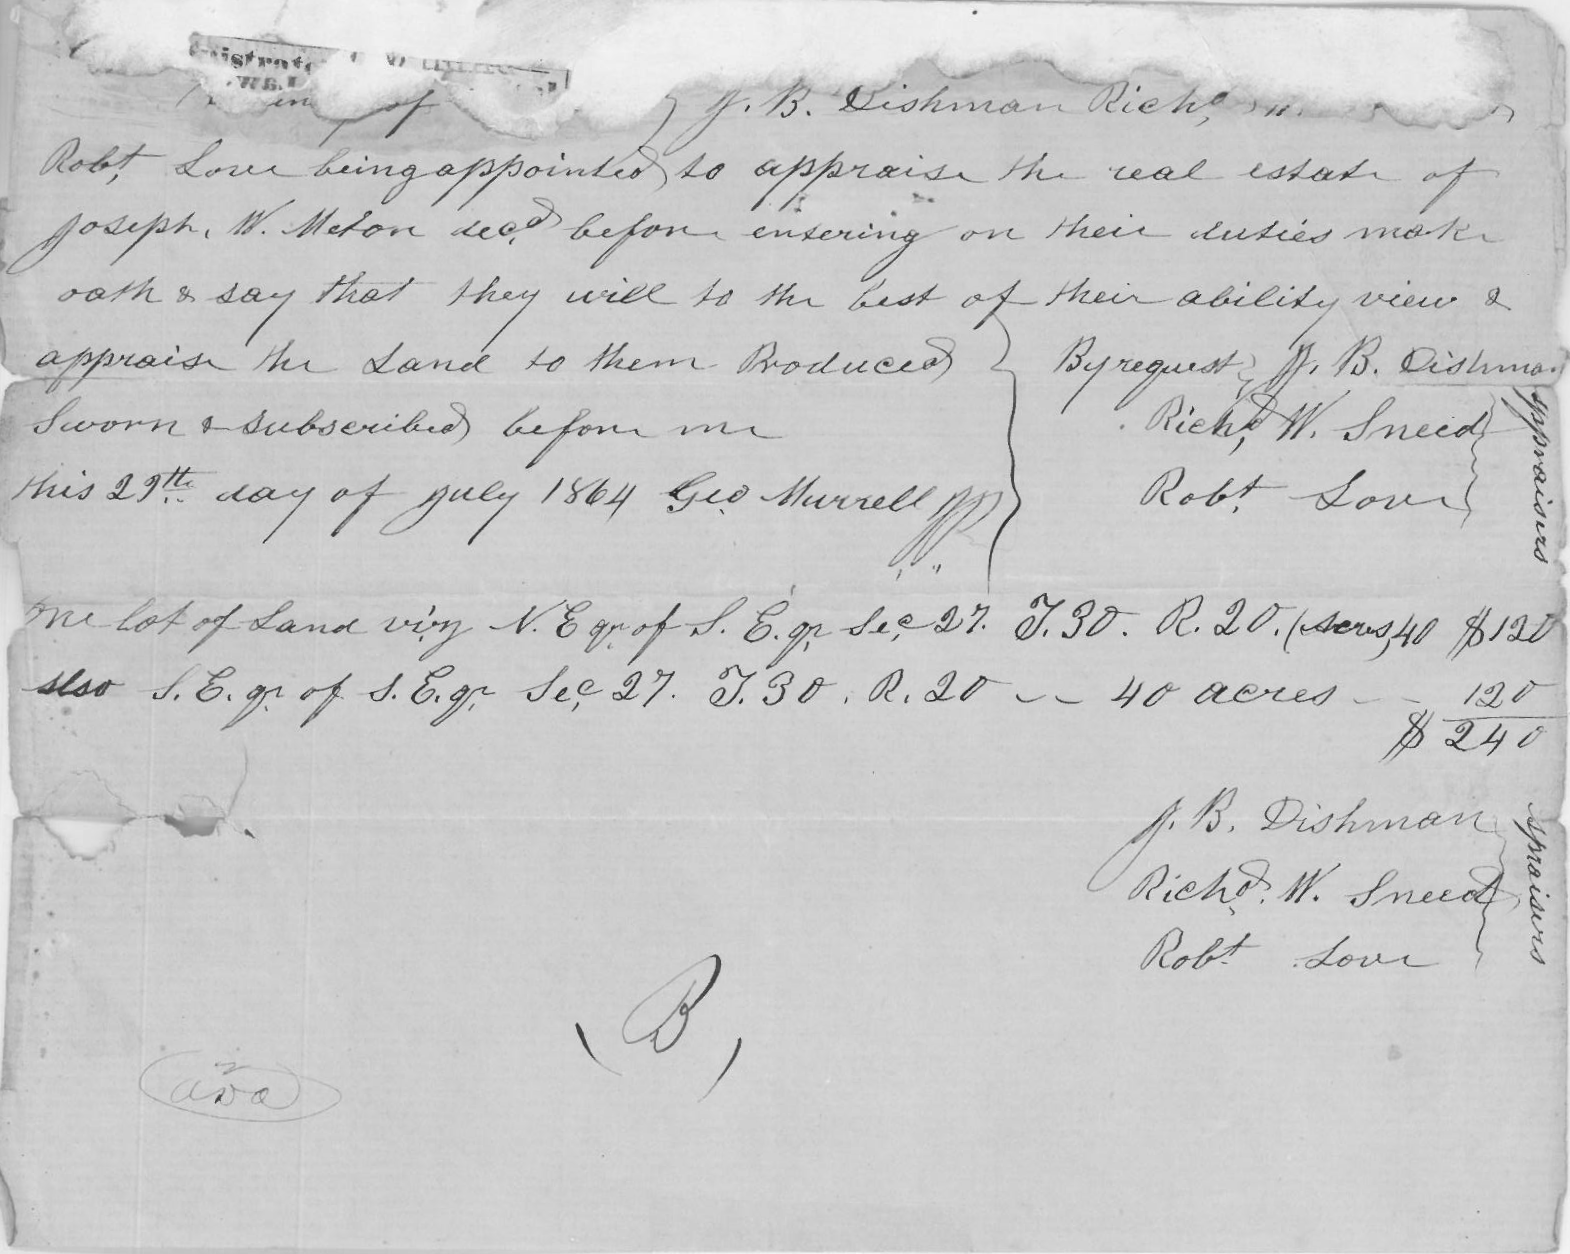 of J. B. Dishman Richd,
Robt, Love being appointed to appraise the real estate of
Joseph, W. Meton decd, before entering on their duties make
oath & say that they will to the best of their ability view &
appraise the Land to them Produced
Sworn & subscribed before me
this 29th day of July 1864 Geo. Murrell JP
By request J. B. Dishman
Richd, W. Sneed
Robt, Love
appraisers
one lot of Land viz N. E qr. of S. E. qr, Sec, 27. T. 30. R. 20. (acres, 40 $ 120
also S. E. qr. of S. E. qr, Sec, 27. T. 30. R. 20 -- 40 acres -- 120
$ 240
J. B. Dishman
Richd. W. Sneed
Robt. Love
apraisers
(B)